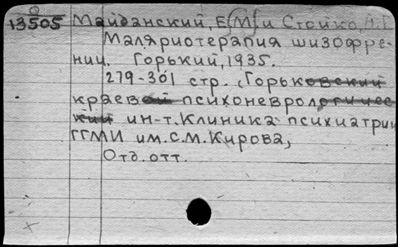 13505 Майданский, Е(М) и Стойко, А.Г.
Маляриотерапия шизофре-
нии. Горький, 1935.
279-301 стр. (Горьковский
краевой психоневрологичес-
кий ин-т. Клиника психиатрии
ГГМИ им. С.М. Кирова,
Отд. отт.